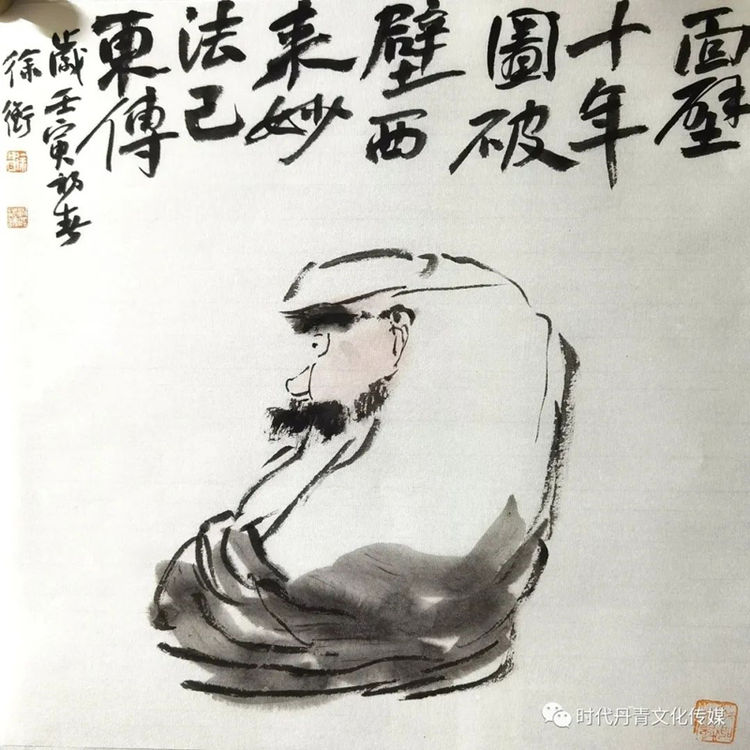 面壁
十年
圖破
壁西
来妙
法已
東傳
歲壬寅初春
徐
时代丹青文化传媒